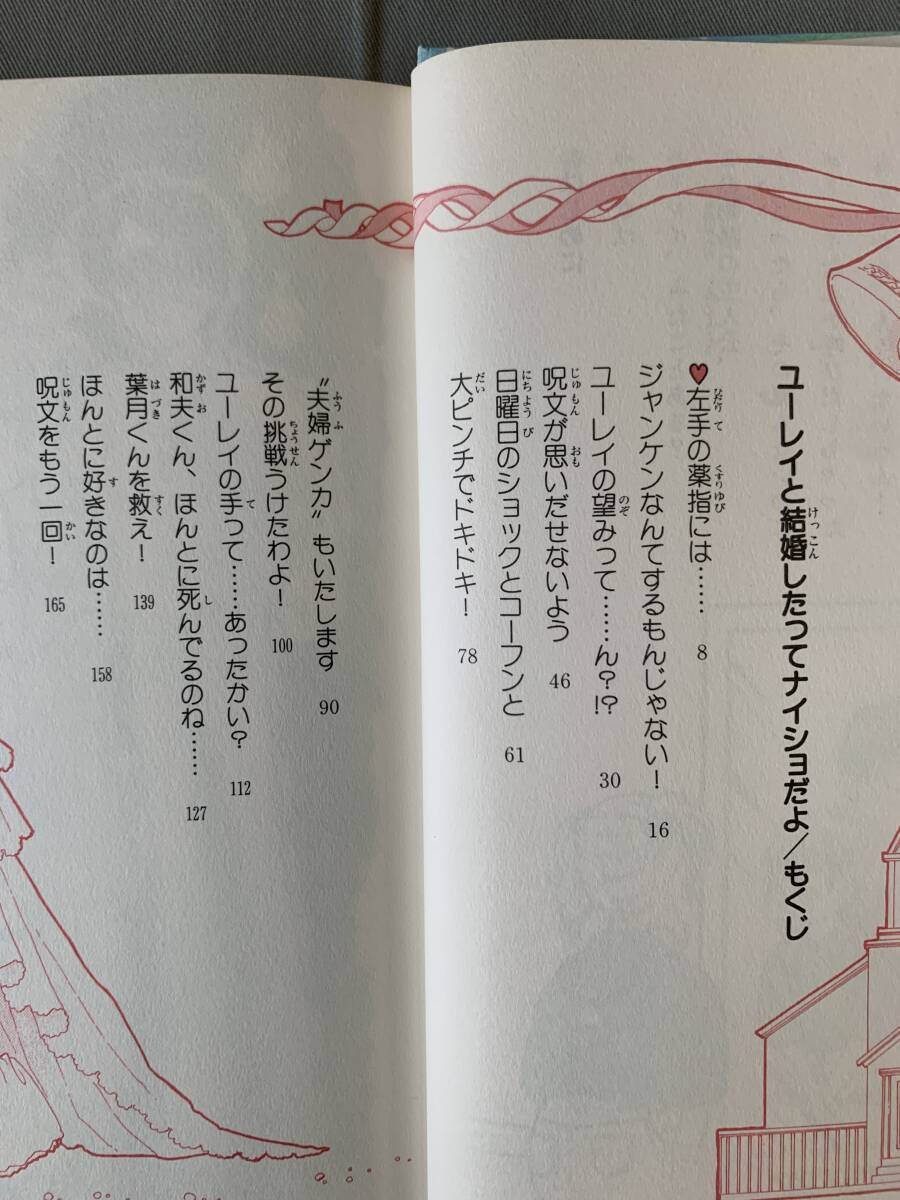 ユーレイと結婚したってナイショだよ/もくじ
♥左手の薬指には…… 8
ジャンケンなんてするもんじゃない! 16
ユーレイの望みって……ん?!? 30
呪文が思いだせないよう 46
日曜日のショックとコーフンと 61
大ピンチでドキドキ! 78
"夫婦ゲンカ"もいたします 90
その挑戦うけたわよ! 100
ユーレイの手って……あったかい? 112
和夫くん、ほんとに死んでるのね…… 127
葉月くんを救え! 139
ほんとに好きなのは…… 158
呪文をもう一回! 165